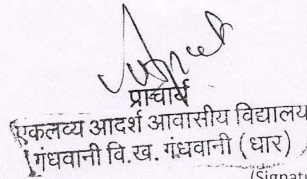 प्राचार्य
एकलव्य आदर्श आवासीय विद्यालय
गंधवानी वि.ख. गंधवानी (धार)
(Signat